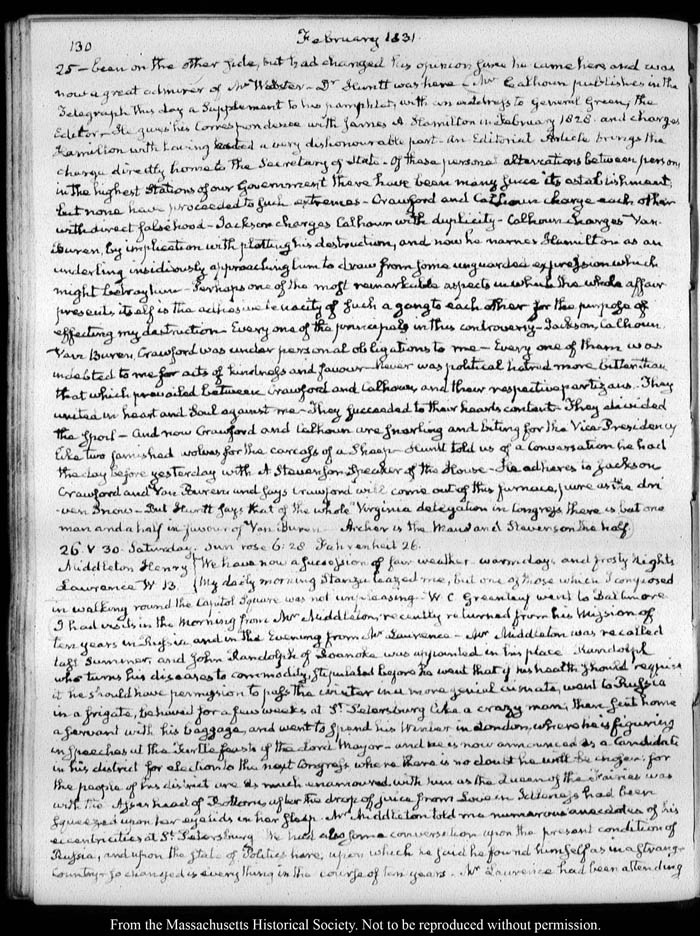 130
February 1831.
25 - been on the other side, but had changed his opinion since he came here, and was
now a great admirer of Mr Webster - Dr Huntt was here - Mr Calhoun publishes in the
Telegraph this day a Supplement to his pamphlet, with an address to General Green, the
Editor - He gives his correspondence with James A. Hamilton in February 1828. and charges
Hamilton with having acted a very dishonourable part - An Editorial Article brings the
charge directly home to the Secretary of State - Of these personal altercations between persons
in the highest Stations of our Government there have been many since its establishment,
but none have proceeded to such extremes - Crawford and Calhoun charge each other
with direct falsehood - Jackson charges Calhoun with duplicity - Calhoun charges Van
Buren, by implication with plotting his destruction, and now he names Hamilton as an
underling insidiously approaching him to draw from some unguarded expression which
might betray him - Perhaps one of the most remarkable aspects in which the whole affair
presents itself is the adhesive tenacity of such a gang to each other for the purpose of
effecting my destruction - Every one of the principals in this controversy - Jackson, Calhoun
Van Buren, Crawford was under personal obligations to me - Every one of them was
indebted to me for acts of kindness and favour - Never was political hatred more bitter than
that which prevailed between Crawford and Calhoun, and their respective partizans. They
united in heart and Soul against me - They succeeded to their hearts content - They divided
the Spoil - And now Crawford and Calhoun are snarling and biting for the Vice-Presidency
like two famished wolves for the carcass of a Sheep - Huntt told us of a Conversation he had
the day before yesterday with A Stevenson Speaker of the House - He adheres to Jackson
Crawford and Van Buren and says Crawford will come out of this furnace, pure as the dri
-ven Snow - But Huntt says that of the whole Virginia delegation in Congress there is but one
man and a half in favour of Van Buren - Archer is the Man and Stevenson the half
26. V 30. Saturday. Sun rose 6:28 Fahrenheit 26.
Middleton Henry { We have now a succession of fair weather - warm days and frosty nights
Lawrence W. B. { My daily morning Stanza teazed me, but one of those which I composed
in walking round the Capitol Square was not unpleasing - W. C. Greenleaf went to Baltimore
I had visits in the morning from Mr Middleton, recently returned from his Mission of
ten years in Russia and in the Evening from Mr Lawrence - Mr Middleton was recalled
last Summer, and John Randolph of Roanoke was appointed in his place. Randolph
who turns his diseases to commodity, stipulated before he went that if his health should require
it he should have permission to pass the winter in a more genial climate, went to Russia
in a frigate, behaved for a few weeks at St. Petersburg like a crazy man, then sent home
a servant with his baggage, and went to spend his Winter in London, where he is figuring
in Speeches at the Turtle feasts of the Lord Mayor - and he is now announced as a Candidate
in his district for election to the next Congress where there is no doubt he will be chosen: for
the people of his district are as much enamoured with him as the Queen of the Fairies was
with the Asses head of Bottom, after the drop of juice from Love in Idleness had been
squeezed upon her eyelids in her Sleep. Mr Middleton told me numerous anecdotes of his
eccentricities at St Petersburg We had also some conversation upon the present condition of
Russia, and upon the State of Politics here, upon which he said he found himself as in a strange
Country - so changed is every thing in the course of ten years. Mr Lawrence had been attending
From the Massachusetts Historical Society. Not to be reproduced without permission.